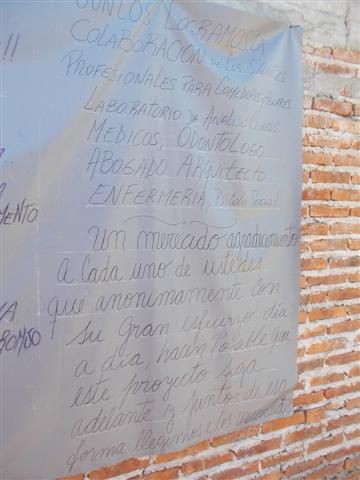 JUNTOS LOGRAMOS LA
COLABORACION de los Siguientes
PROFESIONALES PARA COMEDORES, HOGARES
LABORATORIO DE ANALISIS CLINICOS
MEDICOS, ODONTOLOGO
ABOGADO ARQUITECTO
ENFERMERIA, Psicolo Social
Un merecido agradecimiento
a cada uno de ustedes
que anonimamente con
su gran esfuerzo día
a día, hacen Posible que
este proyecto siga
adelante y juntos de esa
forma lleguemos a los
!!
A
MENTO
ROMISO